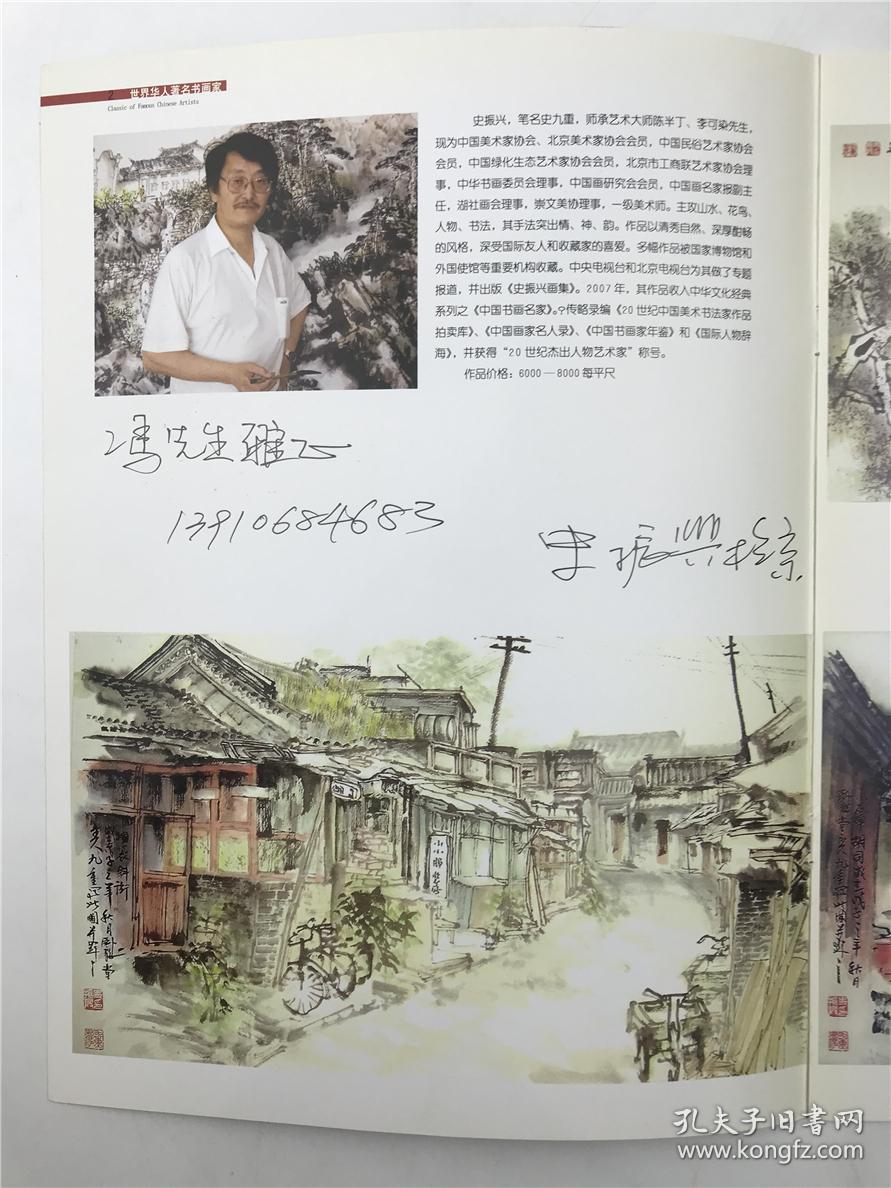 2 世界华人著名书画家
Classic of Famous Chinese Artists
史振兴，笔名史九重，师承艺术大师陈半丁、李可染先生，
现为中国美术家协会、北京美术家协会会员，中国民俗艺术家协会
会员，中国绿化生态艺术家协会会员，北京市工商联艺术家协会理
事，中华书画委员会理事，中国画研究会会员，中国画名家报副主
任，湖社画会理事，崇文美协理事，一级美术师。主攻山水、花鸟、
人物、书法，其手法突出情、神、韵。作品以清秀自然、深厚酣畅
的风格，深受国际友人和收藏家的喜爱。多幅作品被国家博物馆和
外国使馆等重要机构收藏。中央电视台和北京电视台为其做了专题
报道，并出版《史振兴画集》。2007年，其作品收入中华文化经典
系列之《中国书画名家》。?传略录编《20世纪中国美术书法家作品
拍卖库》、《中国画家名人录》、《中国书画家年鉴》和《国际人物辞
海》，并获得“20世纪杰出人物艺术家”称号。
作品价格：6000—8000每平尺
冯先生雅正
13910684683
史振兴
小小酒
斜街
孔夫子旧书网
www.kongfz.com